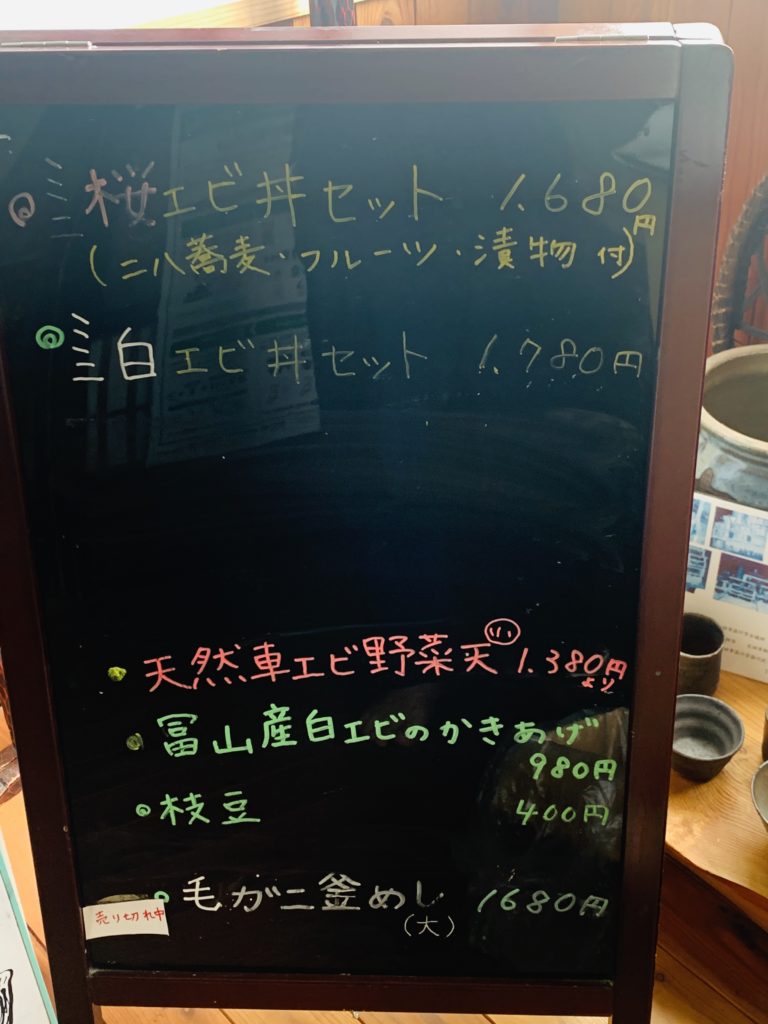 桜エビ丼セット 1.680円
(二八蕎麦・フルーツ・漬物付)
白エビ丼セット 1.780円
天然車エビ野菜天 1.380円より
冨山産白エビのかきあげ
980円
枝豆 400円
毛がニ釜めし 1680円
(大)
売り切れ中